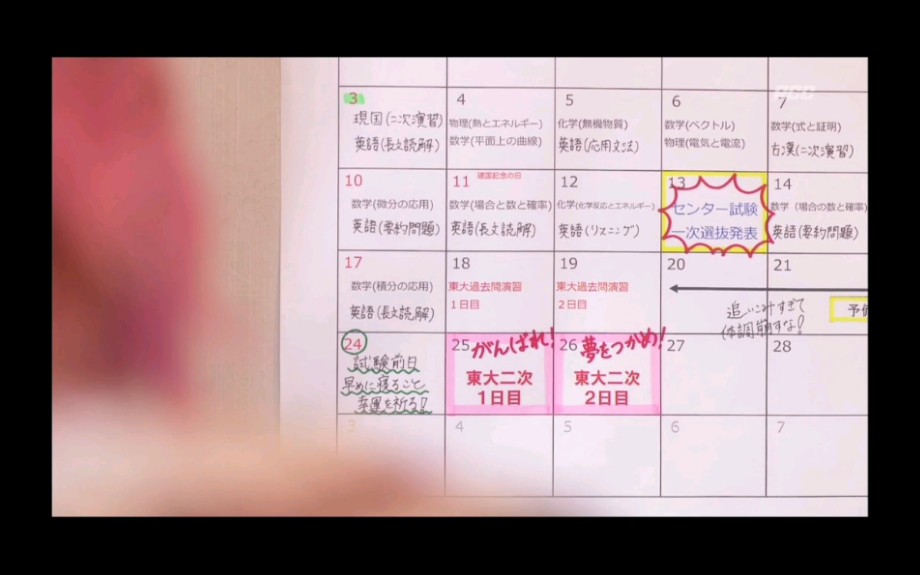 3
4
5
6
7
現国(二次演習)
英語(長文読解)
物理(熱とエネルギー)
数学(平面上の曲線)
化学(無機物質)
英語(応用文法)
数学(ベクトル)
物理(電気と電流)
数学(式と証明)
古漢(二次演習)
10
11
建国記念の日
12
13
14
数学(微分の応用)
英語(要約問題)
数学(場合と数と確率)
英語(長文読解)
化学(化学反応とエネルギー)
英語(リスニング)
センター試験
一次選抜発表
数学(場合の数と確率)
英語(要約問題)
17
18
19
20
21
数学(積分の応用)
英語(長文読解)
東大過去問演習
1日目
東大過去問演習
2日目
追いこみすぎて
体調崩すな!
予備
24
25
26
27
28
試験前日
早めに寝ること
幸運を祈る!
がんばれ!
東大二次
1日目
夢をつかめ!
東大二次
2日目
3
4
5
6
7